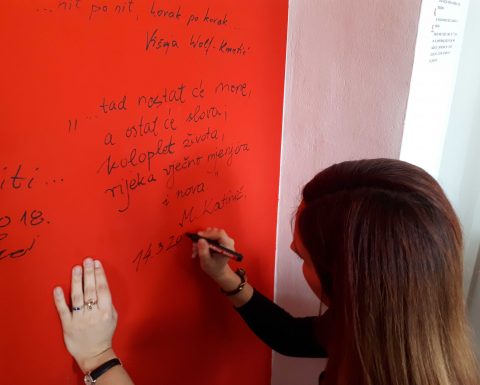 ... nit po nit, korak po korak...
Višnja Wolf-
"... tad nestat će mene,
a ostat će slova;
koloplet života,
rijeka vječno mjenjiva
i nova"
M. Katinić,
14.3.20
iti...
018.